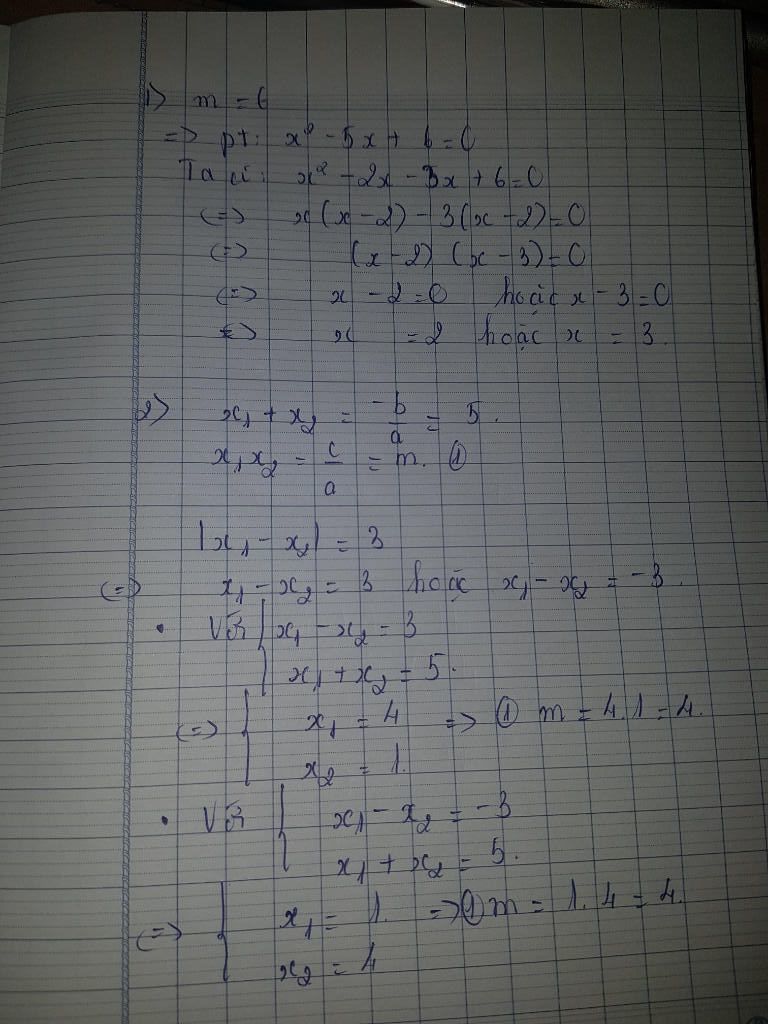 1) m = 6
=> pt: x² - 5x + 6 = 0
Ta có: x² - 2x - 3x + 6 = 0
(=) x(x - 2) - 3(x - 2) = 0
(=) (x - 2) (x - 3) = 0
(=) x - 2 = 0 hoặc x - 3 = 0
<=> x = 2 hoặc x = 3.
2) x₁ + x₂ = -b/a = 5.
x₁x₂ = c/a = m. ①
|x₁ - x₂| = 3
(=) x₁ - x₂ = 3 hoặc x₁ - x₂ = -3.
• Với { x₁ - x₂ = 3
x₁ + x₂ = 5.
(=) { x₁ = 4 => ① m = 4.1 = 4.
x₂ = 1.
• Với { x₁ - x₂ = -3
x₁ + x₂ = 5.
(=) { x₁ = 1. => ① m = 1.4 = 4.
x₂ = 4